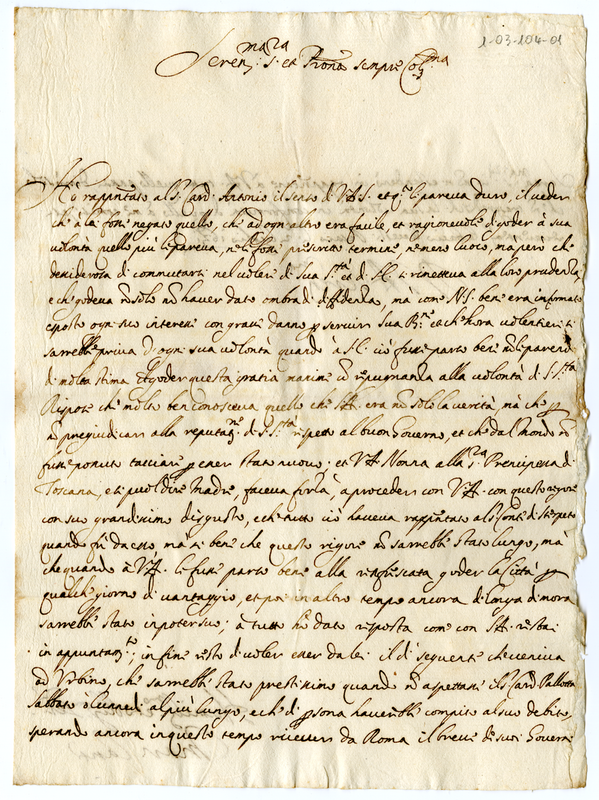 1-03-104-01
Seren:ma S:ra et Prona sempre Col:ma
Hò rapp:ntato al S. Card. Antonio il senso di V.A.S. et q. le pareva duro, il veder
ch'à lei fosse negato quello, che ad ogni altro era facile, et ragionevole di goder à sua
volontà quello più le pareva, ne le fosse prescritto termine, ne meno luoco, mà però che
desiderosa di commutarsi nel voler di Sua S.tà et di S.E. si rimetteva alla loro prudenza,
e che godeva nõ solo nõ haver dato ombra di diffidenza, mà come N.S. bene era informato
esposto ogni suo interesse con grave danno p servir Sua B.ne et ch'hora volentieri si
sarrebbe priva d'ogni sua volontà quando à S.E. ciò fusse parso bene nõ le parendo
di molta stima goder questa gratia maxime cõ repugnanza alla volontà di S. S.tà
Rispose che molto ben conosceva quello che S.A. era nõ solo la verità, mà che p
nõ pregiudicar alla reputat.ne di S. S.tà rispetto al buon Governo, et che dal mondo nõ
fusse potuto tacciare p esser stato nuovo; et V.A. Nonna alla S.ra Prencipessa di
Toscana, e si può dire Madre, faceva forza, à proceder con V.A. con questo rigore
con suo grandissimo disgusto, e che tutto ciò haveva rapp:ntato al S. Conte di
quando fù da esso, mà si bene che questo rigore nõ sarrebbe stato lungo, mà
che quando à V.A. le fusse parso bene alla rinfrescata goder la Città p
qualche giorno di vantaggio, et poi in altro tempo ancora di longa dimora
sarrebbe stato in poter suo; à tutto hò dato risposta come con S.A. restai
in appuntam.to, in fine resto di voler esser da lei il dì seguente che veniva
ad Urbino, che sarrebbe stato prestissimo quando nõ aspettasse il S. Card. Pallotta
Sabbato ò Lunedì al più lungo, e che di psona haverebbe compito al suo debito,
sperando ancora in questo tempo ricever da Roma il breve de suoi Governi